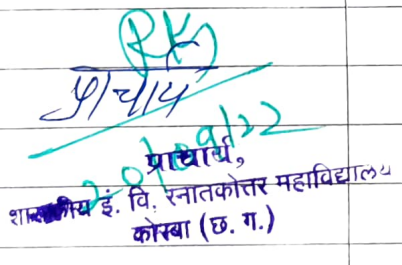 प्राचार्य
20/09/22
प्राचार्य,
शासकीय इं. वि. स्नातकोत्तर महाविद्यालय
कोरबा (छ. ग.)